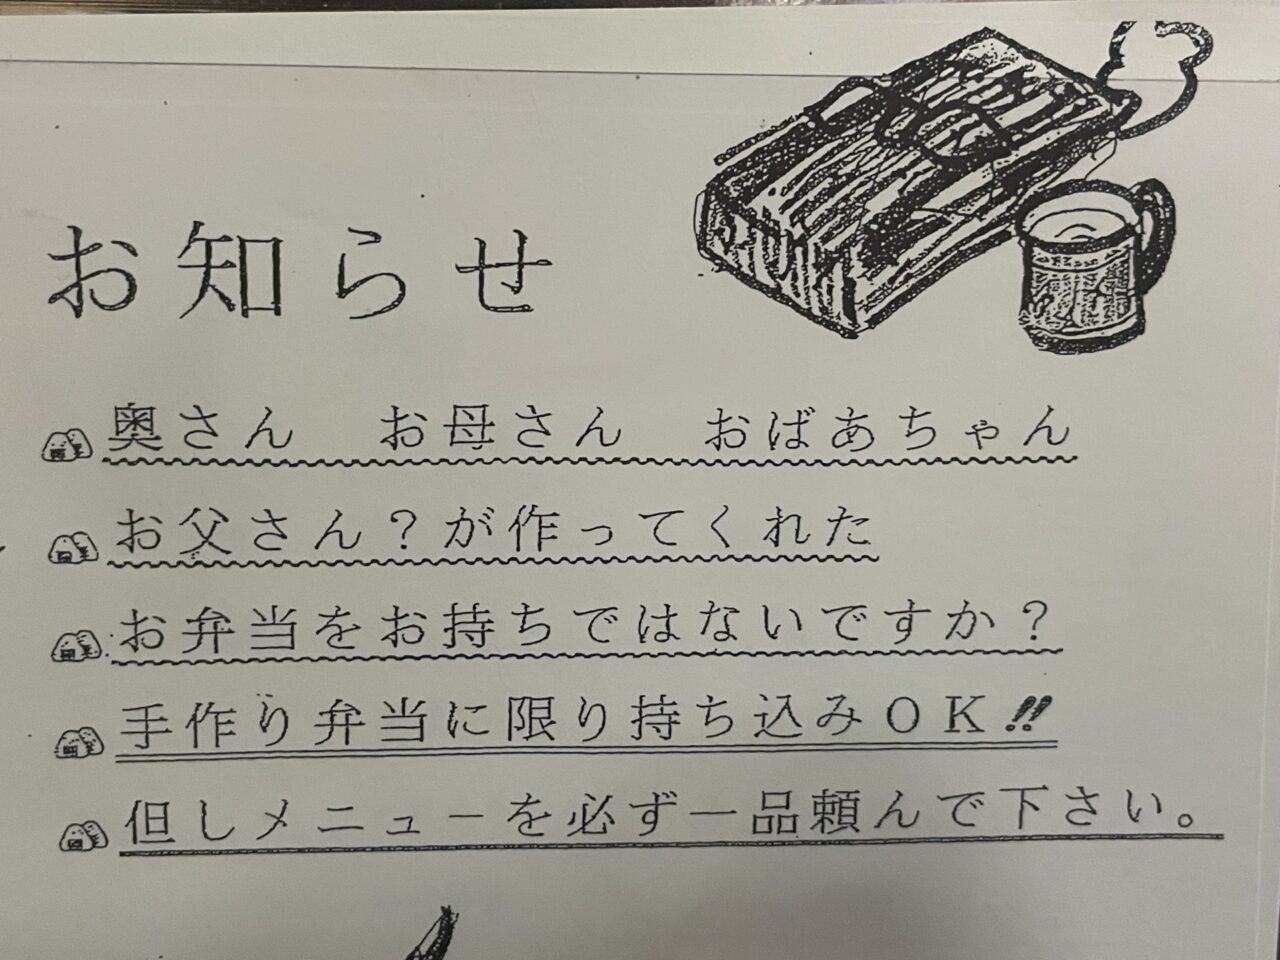 お知らせ
奥さん　お母さん　おばあちゃん
お父さん？が作ってくれた
お弁当をお持ちではないですか？
手作り弁当に限り持ち込みＯＫ!!
但しメニューを必ず一品頼んで下さい。